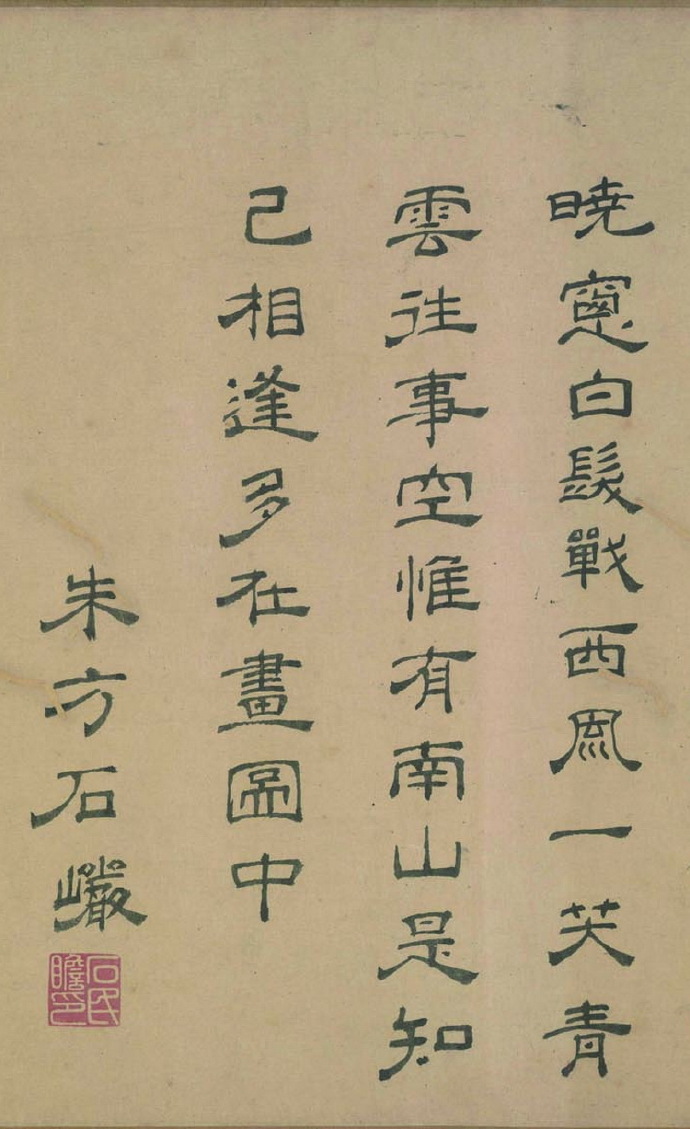 曉窻白髮戰西風一笑青
雲往事空惟有南山是知
己相逢多在畫圖中
朱方石巖
石氏瞻印